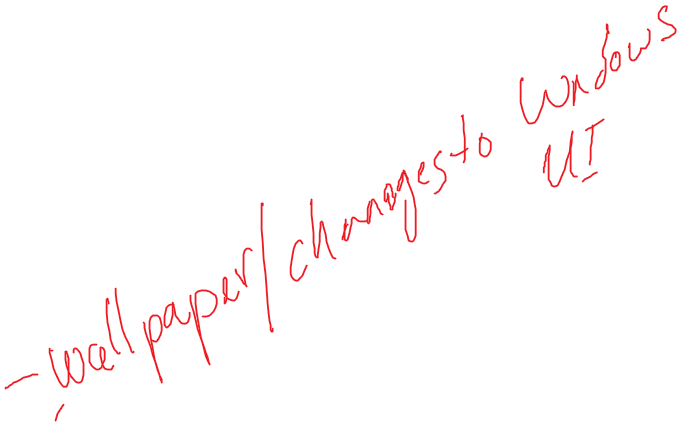 - wallpaper/changes to Windows
UI